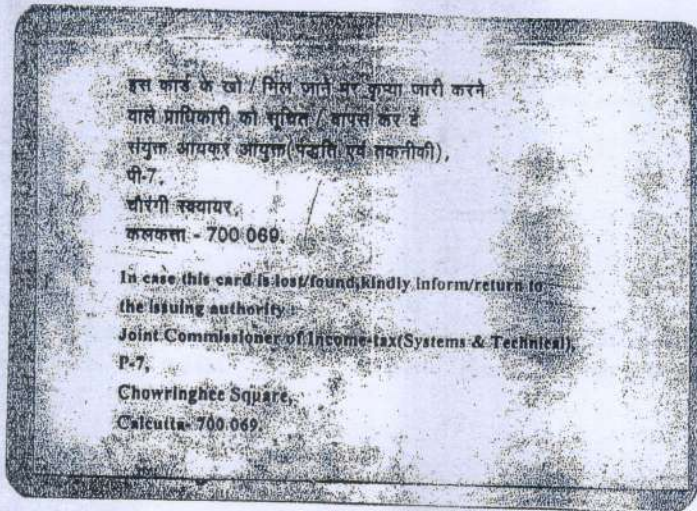 इस कार्ड के खो / मिल जाने पर कृप्या जारी करने
वाले प्राधिकारी को सूचित / वापस कर दें
संयुक्त आयकर आयुक्त(पद्धति एवं तकनीकी),
पी-7,
चौरंगी स्क्वायर,
कलकत्ता - 700 069.
In case this card is lost/found,kindly inform/return to
the issuing authority :
Joint Commissioner of Income-tax(Systems & Technical),
P-7,
Chowringhee Square,
Calcutta- 700 069.